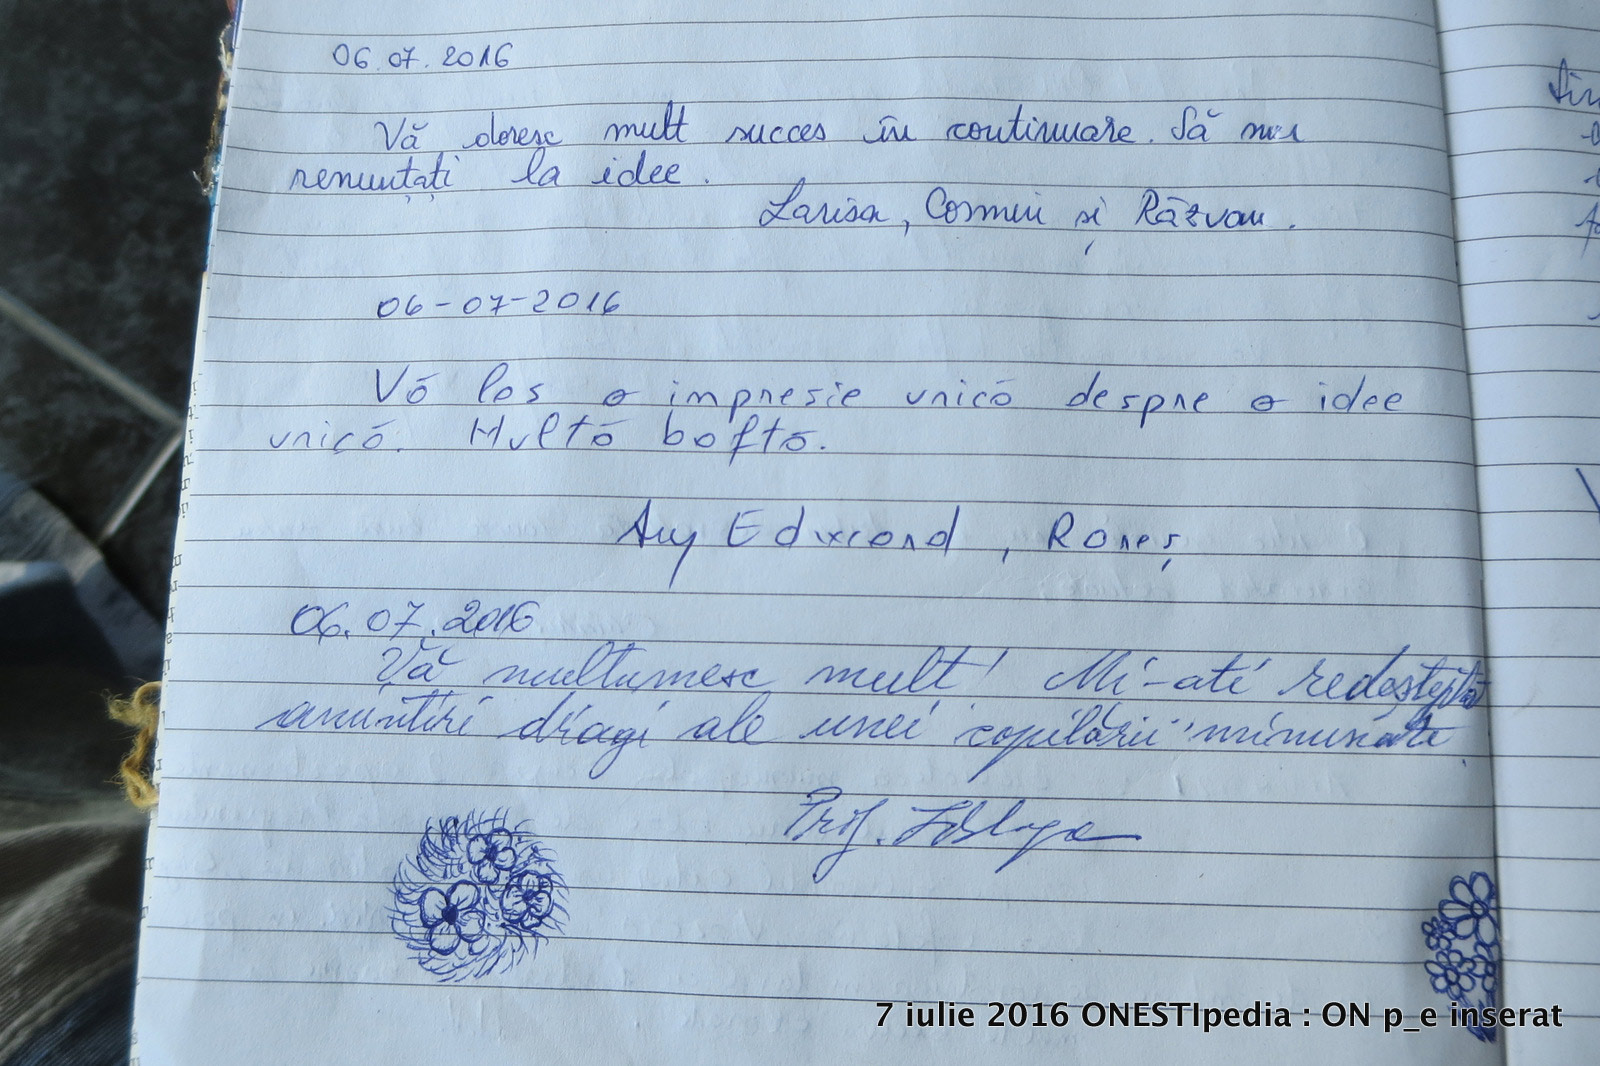 06.07.2016
Vă doresc mult succes în continuare. Să nu
renunțați la idee.
Larisa, Cosmin și Răzvan.
06-07-2016
Vă las o impresie unică despre o idee
unică. Multă baftă.
Edward, Rareș
06.07.2016
Vă mulțumesc mult! Mi-ati redeștept
amintiri dragi ale unei copilării minunate.
Prof.
7 iulie 2016 ONESTIpedia : ON p_e inserat